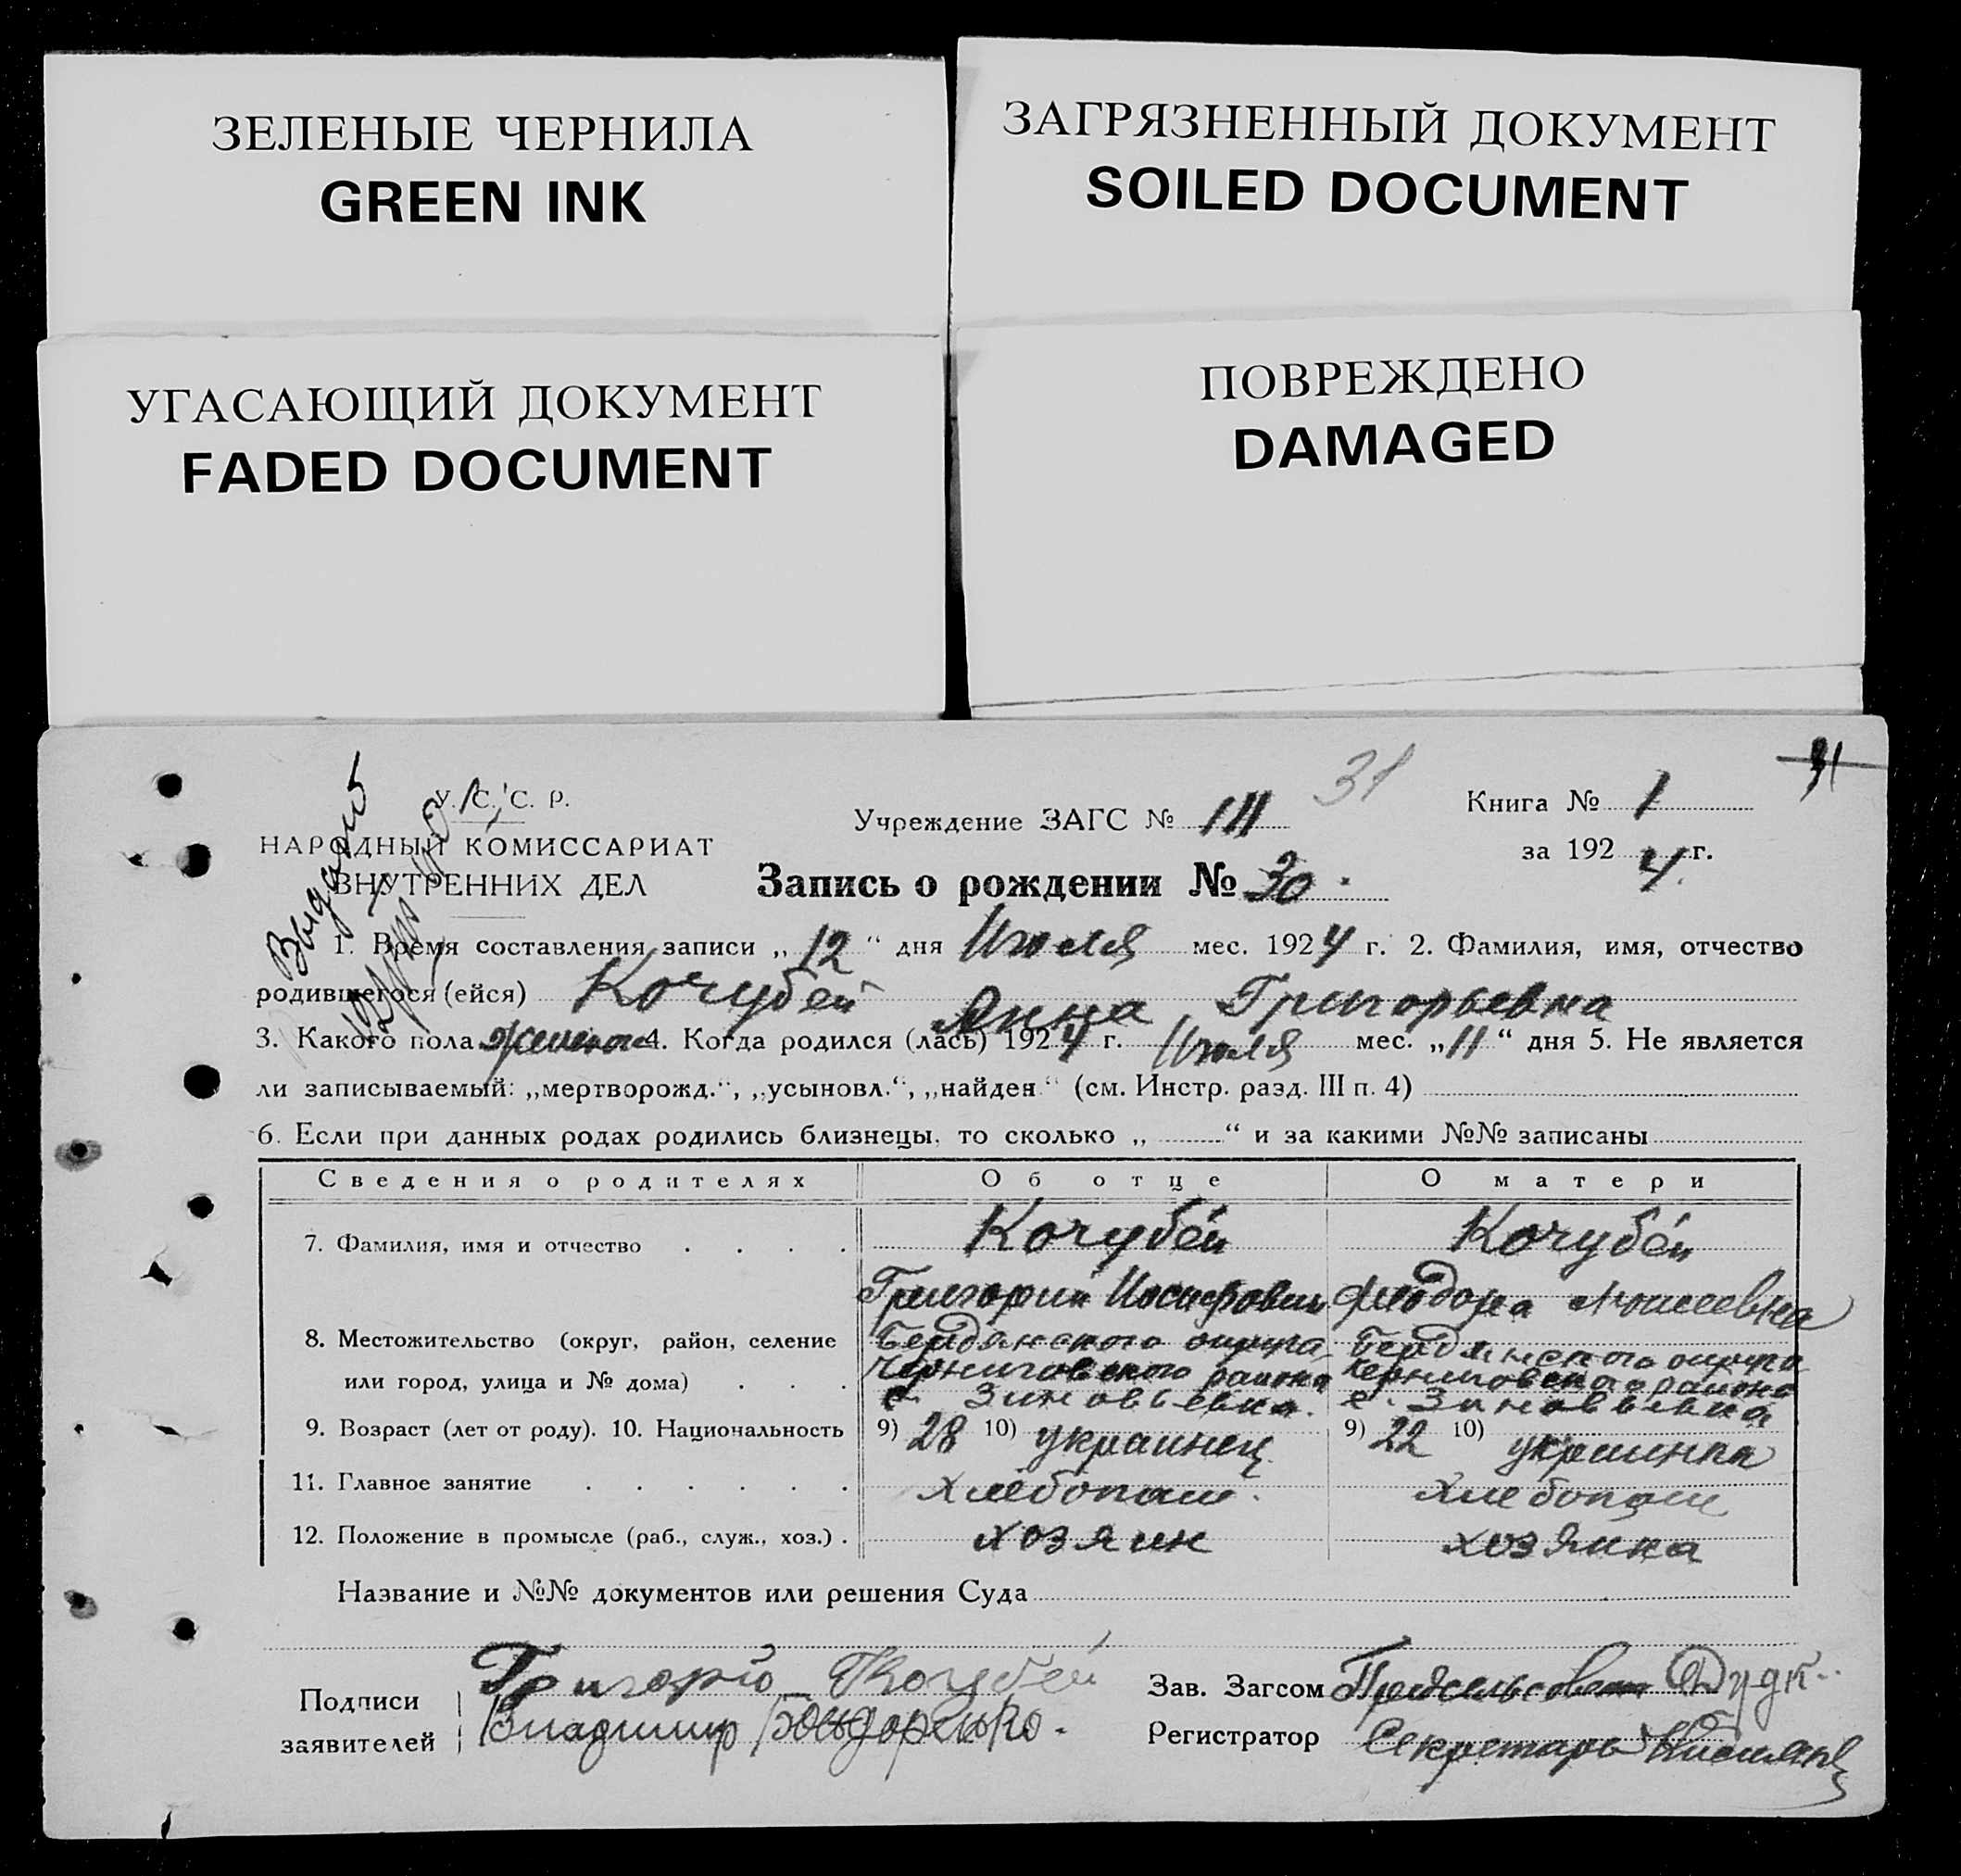 ЗЕЛЕНЫЕ ЧЕРНИЛА
GREEN INK
ЗАГРЯЗНЕННЫЙ ДОКУМЕНТ
SOILED DOCUMENT
УГАСАЮЩИЙ ДОКУМЕНТ
FADED DOCUMENT
ПОВРЕЖДЕНО
DAMAGED
31
31
У. С. С. Р.
НАРОДНЫЙ КОМИССАРИАТ
ВНУТРЕННИХ ДЕЛ
Учреждение ЗАГС №
Книга № 1
за 1924 г.
Запись о рождении № 30.
1. Время составления записи „ 12 “ дня Июля мес. 1924 г. 2. Фамилия, имя, отчество
родившегося (ейся) Кочубей Анна Григорьевна
3. Какого пола 4. Когда родился (лась) 1924 г. Июля мес. „11“ дня 5. Не является
ли записываемый: „мертворожд.“, „усыновл.“, „найден“ (см. Инстр. разд. III п. 4)
6. Если при данных родах родились близнецы, то сколько „ “ и за какими №№ записаны
Сведения о родителях Об отце О матери
7. Фамилия, имя и отчество . . . . Кочубей Кочубей
Григорий Иосифович Феодора Моисеевна
8. Местожительство (округ, район, селение Бердянского округа Бердянского округа
или город, улица и № дома) . . . Черниговского района Черниговского района
с. Зиновьевка. с. Зиновьевка
9. Возраст (лет от роду). 10. Национальность 9) 28 10) украинец 9) 22 10) украинка
11. Главное занятие . . . . . . хлебопаш. хлебопаш
12. Положение в промысле (раб., служ., хоз.) . хозяин хозяйка
Название и №№ документов или решения Суда
Подписи
заявителей
Григорій Кочубей
Владимир Бондаренко.
Зав. Загсом Предсельсовета Дудк..
Регистратор Секретарь
Выдана